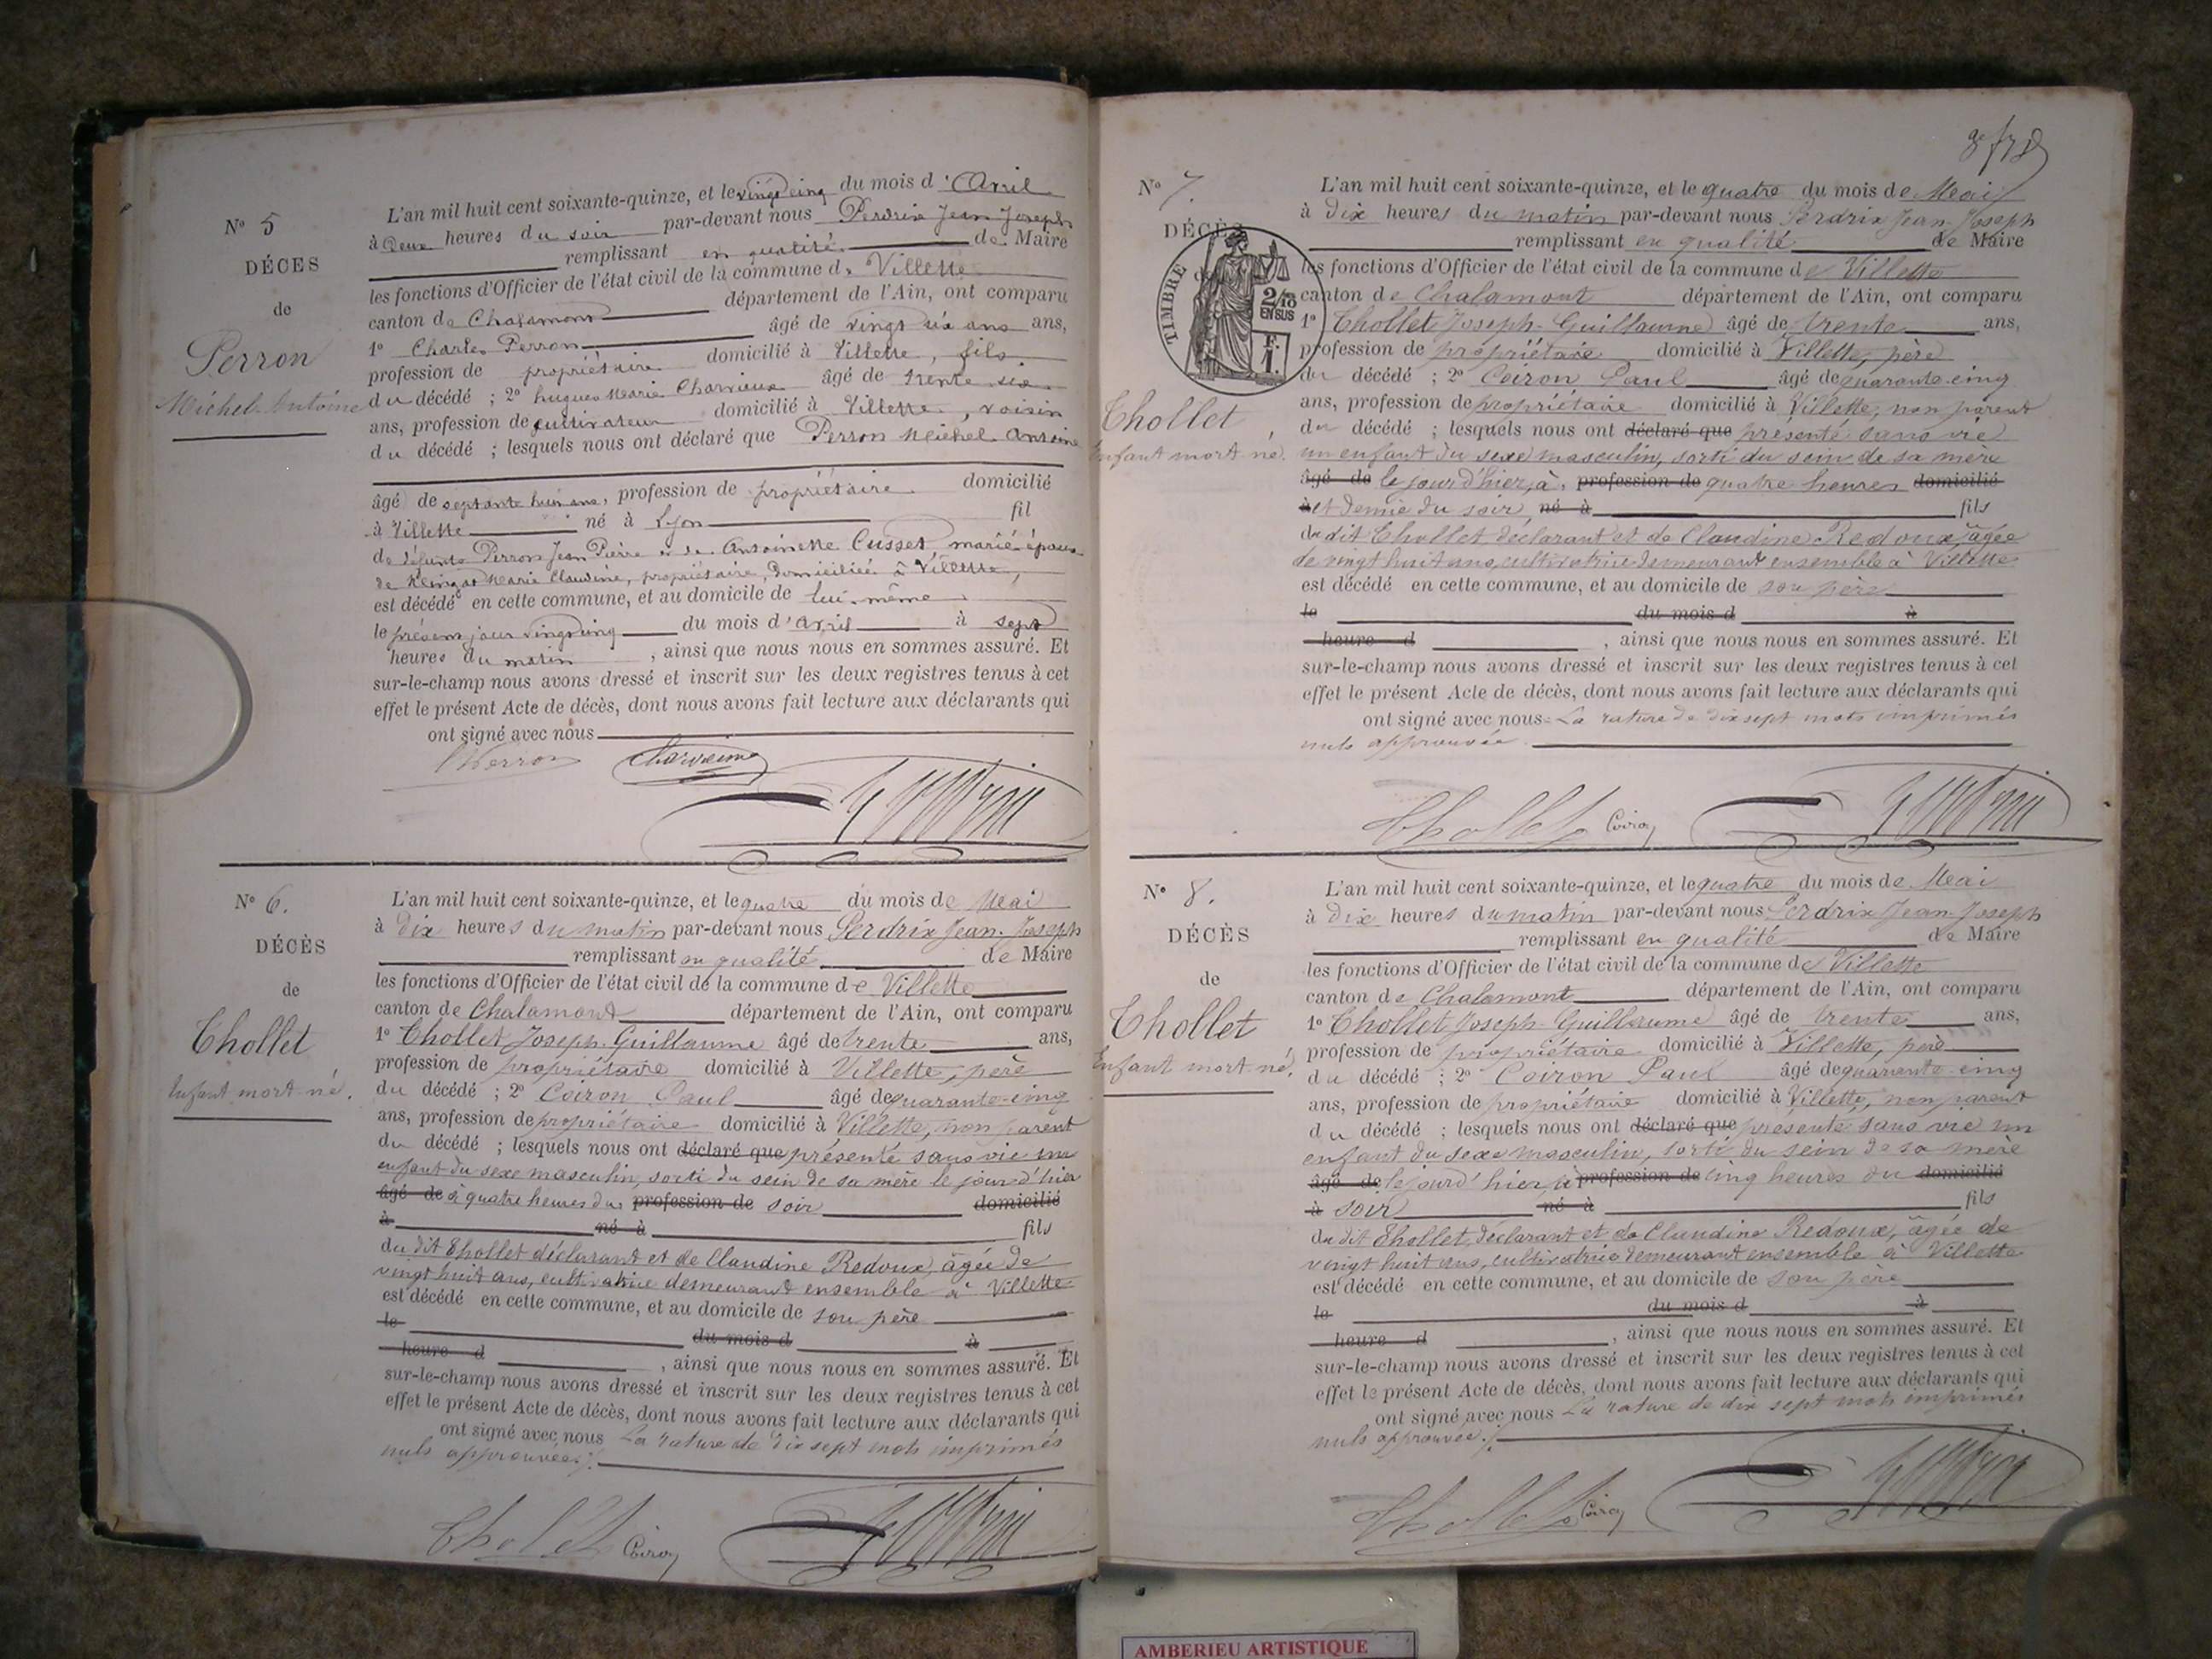 N° 5
DÉCES
de
Perron
Michel-Antoine
L'an mil huit cent soixante-quinze, et le vingt cinq du mois d'Avril
à Deux heures du soir par-devant nous Perdrix Jean Joseph
remplissant en qualité de Maire
les fonctions d'Officier de l'état civil de la commune de Villette
canton de Chalamont département de l'Ain, ont comparu
1° Charles Perron âgé de vingt six ans ans,
profession de propriétaire domicilié à Villette, fils
du décédé ; 2° hugues Marie Charvieux âgé de trente six
ans, profession de cultivateur domicilié à Villette, voisin
du décédé ; lesquels nous ont déclaré que Perron Michel Antoine
âgé de septante huit ans, profession de propriétaire domicilié
à Villette né à Lyon fil
de défunts Perron Jean Pierre et de Antoinette Cusset marié époux
de Marie Claudine, propriétaire, domiciliée à Villette,
est décédé en cette commune, et au domicile de lui-même
le présent jour vingt cinq du mois d'avril à sept
heures du matin, ainsi que nous nous en sommes assuré. Et
sur-le-champ nous avons dressé et inscrit sur les deux registres tenus à cet
effet le présent Acte de décès, dont nous avons fait lecture aux déclarants qui
ont signé avec nous
Perron Charvieux
N° 6.
DÉCÈS
de
Thollet
Enfant mort-né.
L'an mil huit cent soixante-quinze, et le quatre du mois de Mai
à Dix heures du matin par-devant nous Perdrix Jean-Joseph
remplissant en qualité de Maire
les fonctions d'Officier de l'état civil de la commune de Villette
canton de Chalamont département de l'Ain, ont comparu
1° Thollet Joseph-Guillaume âgé de trente ans,
profession de propriétaire domicilié à Villette, père
du décédé ; 2° Coiron Paul âgé de quarante-cinq
ans, profession de propriétaire domicilié à Villette, non parent
du décédé ; lesquels nous ont déclaré que présenté sans vie un
enfant du sexe masculin, sorti du sein de sa mère le jour d'hier
âgé de à quatre heures du profession de soir domicilié
à né à fils
du dit Thollet déclarant et de Claudine Redoux, âgée de
vingt huit ans, cultivatrice demeurant ensemble à Villette
est décédé en cette commune, et au domicile de son père
le du mois d à
heure d , ainsi que nous nous en sommes assuré. Et
sur-le-champ nous avons dressé et inscrit sur les deux registres tenus à cet
effet le présent Acte de décès, dont nous avons fait lecture aux déclarants qui
ont signé avec nous La rature de dix sept mots imprimés
nuls approuvée.
Thollet Coiron
N° 7.
DÉCÈS
de
TIMBRE
2/10
EN SUS
F.
1.
Thollet
Enfant mort né.
L'an mil huit cent soixante-quinze, et le quatre du mois de Mai
à Dix heures du matin par-devant nous Perdrix Jean-Joseph
remplissant en qualité de Maire
les fonctions d'Officier de l'état civil de la commune de Villette
canton de Chalamont département de l'Ain, ont comparu
1° Thollet Joseph-Guillaume âgé de trente ans,
profession de propriétaire domicilié à Villette, père
du décédé ; 2° Coiron Paul âgé de quarante-cinq
ans, profession de propriétaire domicilié à Villette, non parent
du décédé ; lesquels nous ont déclaré que présenté sans vie
un enfant du sexe masculin, sorti du sein de sa mère
âgé de le jour d'hier, à, profession de quatre heures domicilié
à et demie du soir, né à fils
du dit Thollet déclarant et de Claudine Redoux, âgée
de vingt huit ans, cultivatrice demeurant ensemble à Villette
est décédé en cette commune, et au domicile de son père
le du mois d à
heure d , ainsi que nous nous en sommes assuré. Et
sur-le-champ nous avons dressé et inscrit sur les deux registres tenus à cet
effet le présent Acte de décès, dont nous avons fait lecture aux déclarants qui
ont signé avec nous La rature de dix sept mots imprimés
nuls approuvée.
Thollet Coiron
N° 8.
DÉCÈS
de
Thollet
Enfant mort né.
L'an mil huit cent soixante-quinze, et le quatre du mois de Mai
à Dix heures du matin par-devant nous Perdrix Jean-Joseph
remplissant en qualité de Maire
les fonctions d'Officier de l'état civil de la commune de Villette
canton de Chalamont département de l'Ain, ont comparu
1° Thollet Joseph-Guillaume âgé de trente ans,
profession de propriétaire domicilié à Villette, père
du décédé ; 2° Coiron Paul âgé de quarante-cinq
ans, profession de propriétaire domicilié à Villette, non parent
du décédé ; lesquels nous ont déclaré que présenté sans vie un
enfant du sexe masculin, sorti du sein de sa mère
âgé de le jour d'hier, à profession de cinq heures du domicilié
à soir né à fils
du dit Thollet, déclarant et de Claudine Redoux, âgée de
vingt huit ans, cultivatrice demeurant ensemble à Villette
est décédé en cette commune, et au domicile de son père
le du mois d à
heure d , ainsi que nous nous en sommes assuré. Et
sur-le-champ nous avons dressé et inscrit sur les deux registres tenus à cet
effet le présent Acte de décès, dont nous avons fait lecture aux déclarants qui
ont signé avec nous La rature de dix sept mots imprimés
nuls approuvée.
Thollet Coiron
AMBERIEU ARTISTIQUE